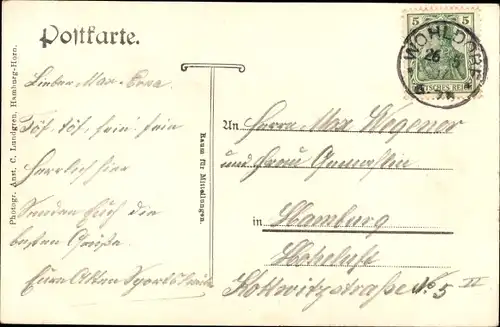 Postkarte.
5 5
DEUTSCHES REICH
WOHLDORF
26
Photogr. Anst. C. Lundgren, Hamburg-Horn.
Raum für Mitteilungen.
Lieber Max
Töf, töf, fein fein
Herrlich hier
Senden Euch die
besten Grüße.
Eure Alten
An Herrn Max Wegener
und Frau Gemahlin
in Hamburg
Hoheluft
Kottwitzstraße No 5 II